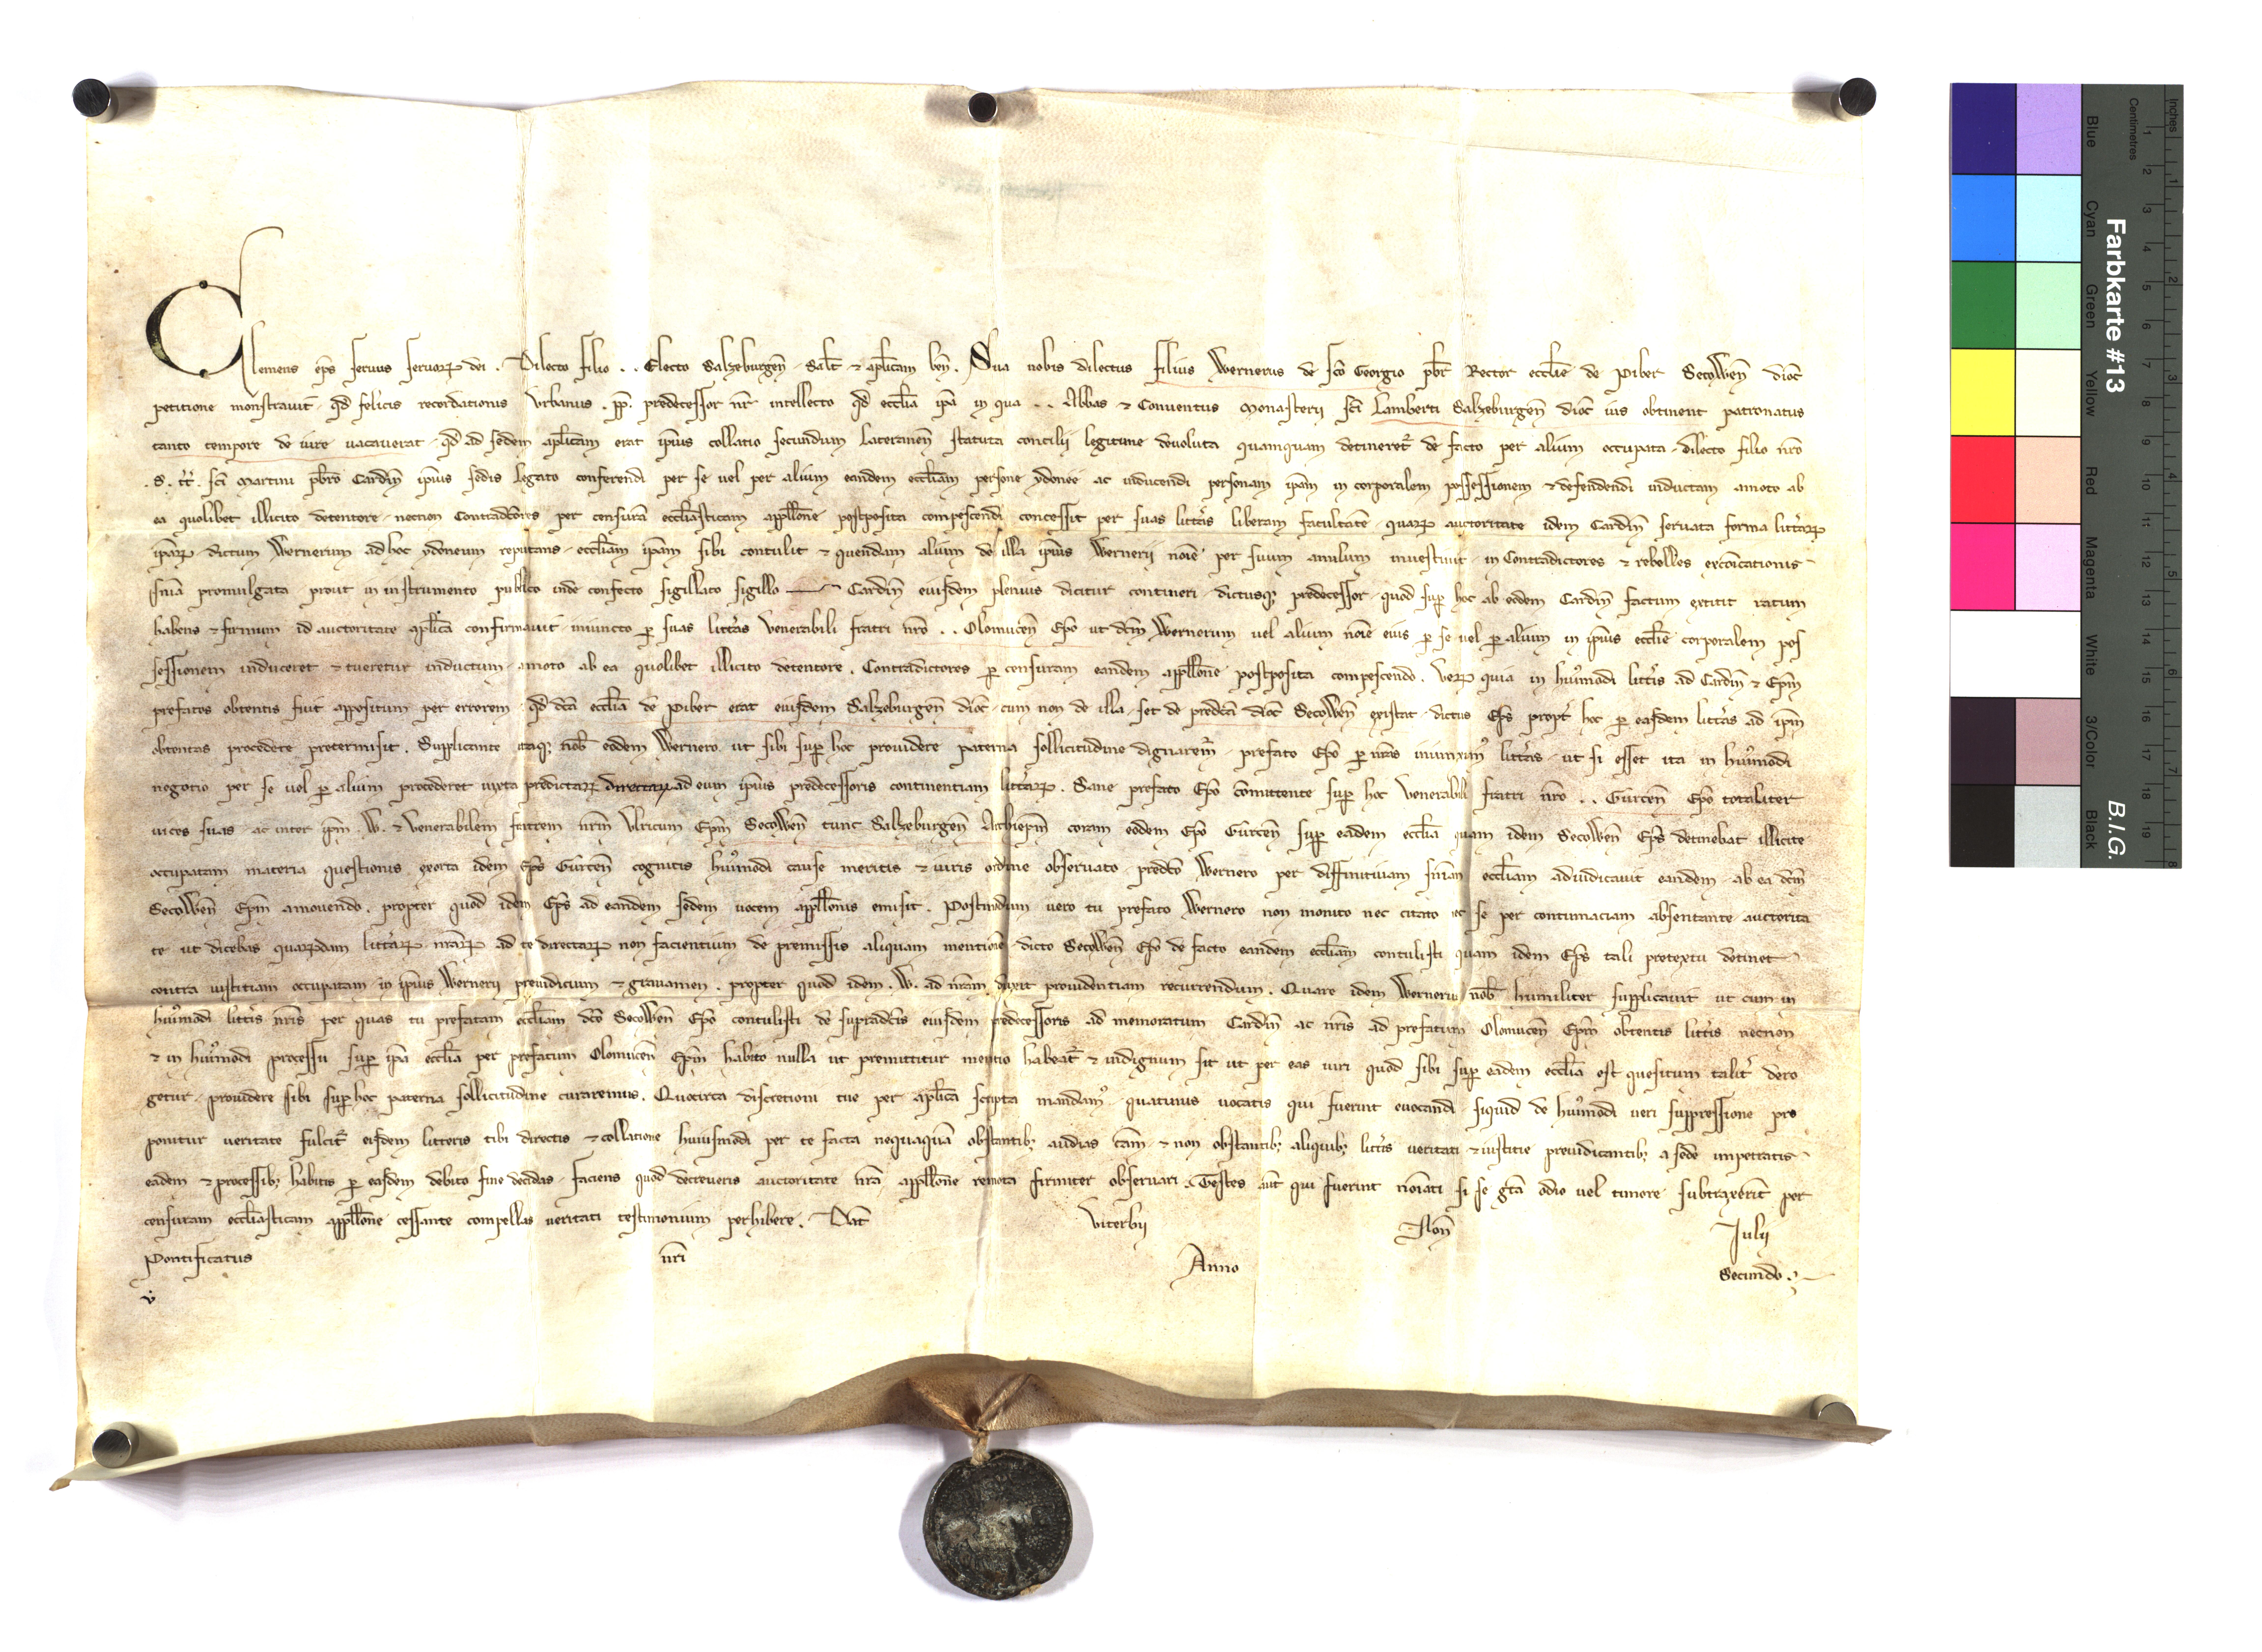 Clemens ep̄s seruus seruoꝝ dei . Dilecto filio . . Electo Salzeburgen̄ . Salt̄ ⁊ ap̄licam ben̄ . Sua nobis dilectus filius Wernerus de sc̄o Georgio pb̄r Rector eccl̄ie de Piber Secowen̄ dioc̄
petitione monstrauit . qd̄ felicis recordationis Urbanus . pp̄ . predecessor nr̄ intellecto qd̄ eccl̄ia ip̄a in qua . . Abbas ⁊ Conuentus Monasterii sc̄i Lamberti Salzeburgen̄ dioc̄ ius obtinent patronatus
tanto tempore de iure uacauerat . qd̄ ad sedem ap̄licam erat ip̄ius collatio secundum Lateranen̄ statuta concilii legitime deuoluta quamquam detineret̄ de facto per alium occupata . dilecto filio nr̄o
. S . tt̄ . sc̄i Martini pb̄ro Cardin̄ ip̄ius sedis legato conferendi per se uel per alium eandem eccl̄iam persone ydonee ac inducendi personam ip̄am in corporalem possessionem ⁊ defendendi inductam amoto ab
ea quolibet illicito detentore . necnon Contradictores per censurā eccl̄iasticam appll̄one postposita compescendi concessit per suas litt̄as liberam facultatē . quaꝝ auctoritate idem Cardin̄ seruata forma litt̄aꝝ
ip̄aꝝ . dictum Wernerum ad hoc ydoneum reputans . eccl̄iam ip̄am sibi contulit ⁊ quendam alium de illa ip̄ius Wernerii noīe per suum anulum inuestiuit . in Contradictores ⁊ rebelles exc̄oicationis
sn̄ia promulgata . prout in instrumento publico inde confecto sigillato sigillo Cardin̄ eiusdem plenius dicitur contineri . dictusqꝫ predecessor . quod suꝑ hoc ab eodem Cardin̄ factum extitit ratum
habens ⁊ firmum id auctoritate ap̄lica confirmauit . iniuncto ꝑ suas litt̄as Venerabili fratri nr̄o . . Olomucen̄ Ep̄o ut dc̄m Wernerum uel alium noīe eius ꝑ se uel ꝑ alium in ip̄ius eccl̄ie corporalem pos
sessionem induceret ⁊ tueretur inductum . amoto ab ea quolibet illicito detentore . Contradictores ꝑ censuram eandem appll̄one postposita compescendo . Veꝝ quia in huꝰmodi litt̄is ad Cardin̄ ⁊ Ep̄m
prefatos obtentis fuit appositum per errorem . qd̄ dc̄a eccl̄ia de Piber erat eiusdem Salzeburgen̄ dioc̄ . cum non de illa . set de predc̄a dioc̄ Secowen̄ existat . dictus Ep̄s propt̄ hoc ꝑ easdem litt̄as ad ip̄m
obtentas procedere pretermisit . Supplicante itaqꝫ nob̄ eodem Wernero . ut sibi suꝑ hoc prouidere paterna sollicitudine dignarem̄ . prefato Ep̄o ꝑ nr̄as iniunximꝰ litt̄as . ut si esset ita in huꝰmodi
negotio per se uel ꝑ alium procederet iuxta predictaꝝ directaꝝ ad eum ip̄ius predecessoris continentiam litt̄aꝝ . Sane prefato Ep̄o comittente suꝑ hoc Venerabili fratri nr̄o . . Gurcen̄ Ep̄o totaliter
uices suas . ac inter ip̄m . W . ⁊ Venerabilem fratrem nr̄m Ulricum Ep̄m Secowen̄ tunc Salzeburgen̄ Archiep̄m coram eodem Ep̄o Gurcen̄ suꝑ eadem eccl̄ia quam idem Secowen̄ Ep̄s detinebat illicite
occupatam materia questionis exorta idem Ep̄s Gurcen̄ cognitis huꝰmodi cause meritis ⁊ iuris ordine obseruato . predc̄o Wernero per diffinitiuam sn̄iam eccl̄iam adiudicauit eandem . ab ea dc̄m
Secowen̄ Ep̄m amouendo . propter quod idem Ep̄s ad eandem sedem uocem appll̄onis emisit . Postmodum uero tu prefato Wernero non monito nec citato nec se per contumaciam absentante auctorita
te ut dicebas quaꝝdam litt̄aꝝ nr̄aꝝ ad te directaꝝ non facientium de premissis aliquam mentionē . dicto Secowen̄ Ep̄o de facto eandem eccl̄iam contulisti quam idem Ep̄s tali pretextu detinet
contra iustitiam occupatam in ip̄ius Wernerii preiudicium ⁊ grauamen . propter quod idem . W . ad nr̄am duxit prouidentiam recurrendum . Quare idem Wernerus nob̄ humiliter supplicauit ut cum in
huꝰmodi litt̄is nr̄is per quas tu prefatam eccl̄iam dc̄o Secowen̄ Ep̄o contulisti de supradc̄is eiusdem predecessoris ad memoratum Cardin̄ ac nr̄is ad prefatum Olomucen̄ Ep̄m obtentis litt̄is necnon
⁊ in huꝰmodi processu suꝑ ip̄a eccl̄ia per prefatum Olomucen̄ Ep̄m habito nulla ut premittitur mentio habeat̄ ⁊ indignum sit ut per eas iuri quod sibi suꝑ eadem eccl̄ia est quesitum talit̄ dero
getur . prouidere sibi suꝑ hoc paterna sollicitudine curaremus . Quocirca discretioni tue per ap̄lica scripta mandamꝰ . quatinus uocatis qui fuerint euocandi . siquid de huꝰmodi ueri suppressione pro
ponitur ueritate fulcit̄ eisdem litteris tibi directis ⁊ collatione huiusmodi per te facta nequaquā obstantibꝫ audias cām ⁊ non obstantibꝫ aliquibꝫ litt̄is ueritati ⁊ iustitie preiudicantibꝫ a sede impetratis
eadem ⁊ processibꝫ habitis ꝑ easdem debito fine decidas . faciens quod decreueris auctoritate nr̄a appll̄one remota firmiter obseruari . Testes aūt qui fuerint noīati si se gr̄a odio uel timore subtraxerīt per
censuram eccl̄iasticam appll̄one cessante compellas ueritati testimonium perhibere . Dat̄ Viterbii Non̄ Iulii
Pontificatus nr̄i Anno Secundo .